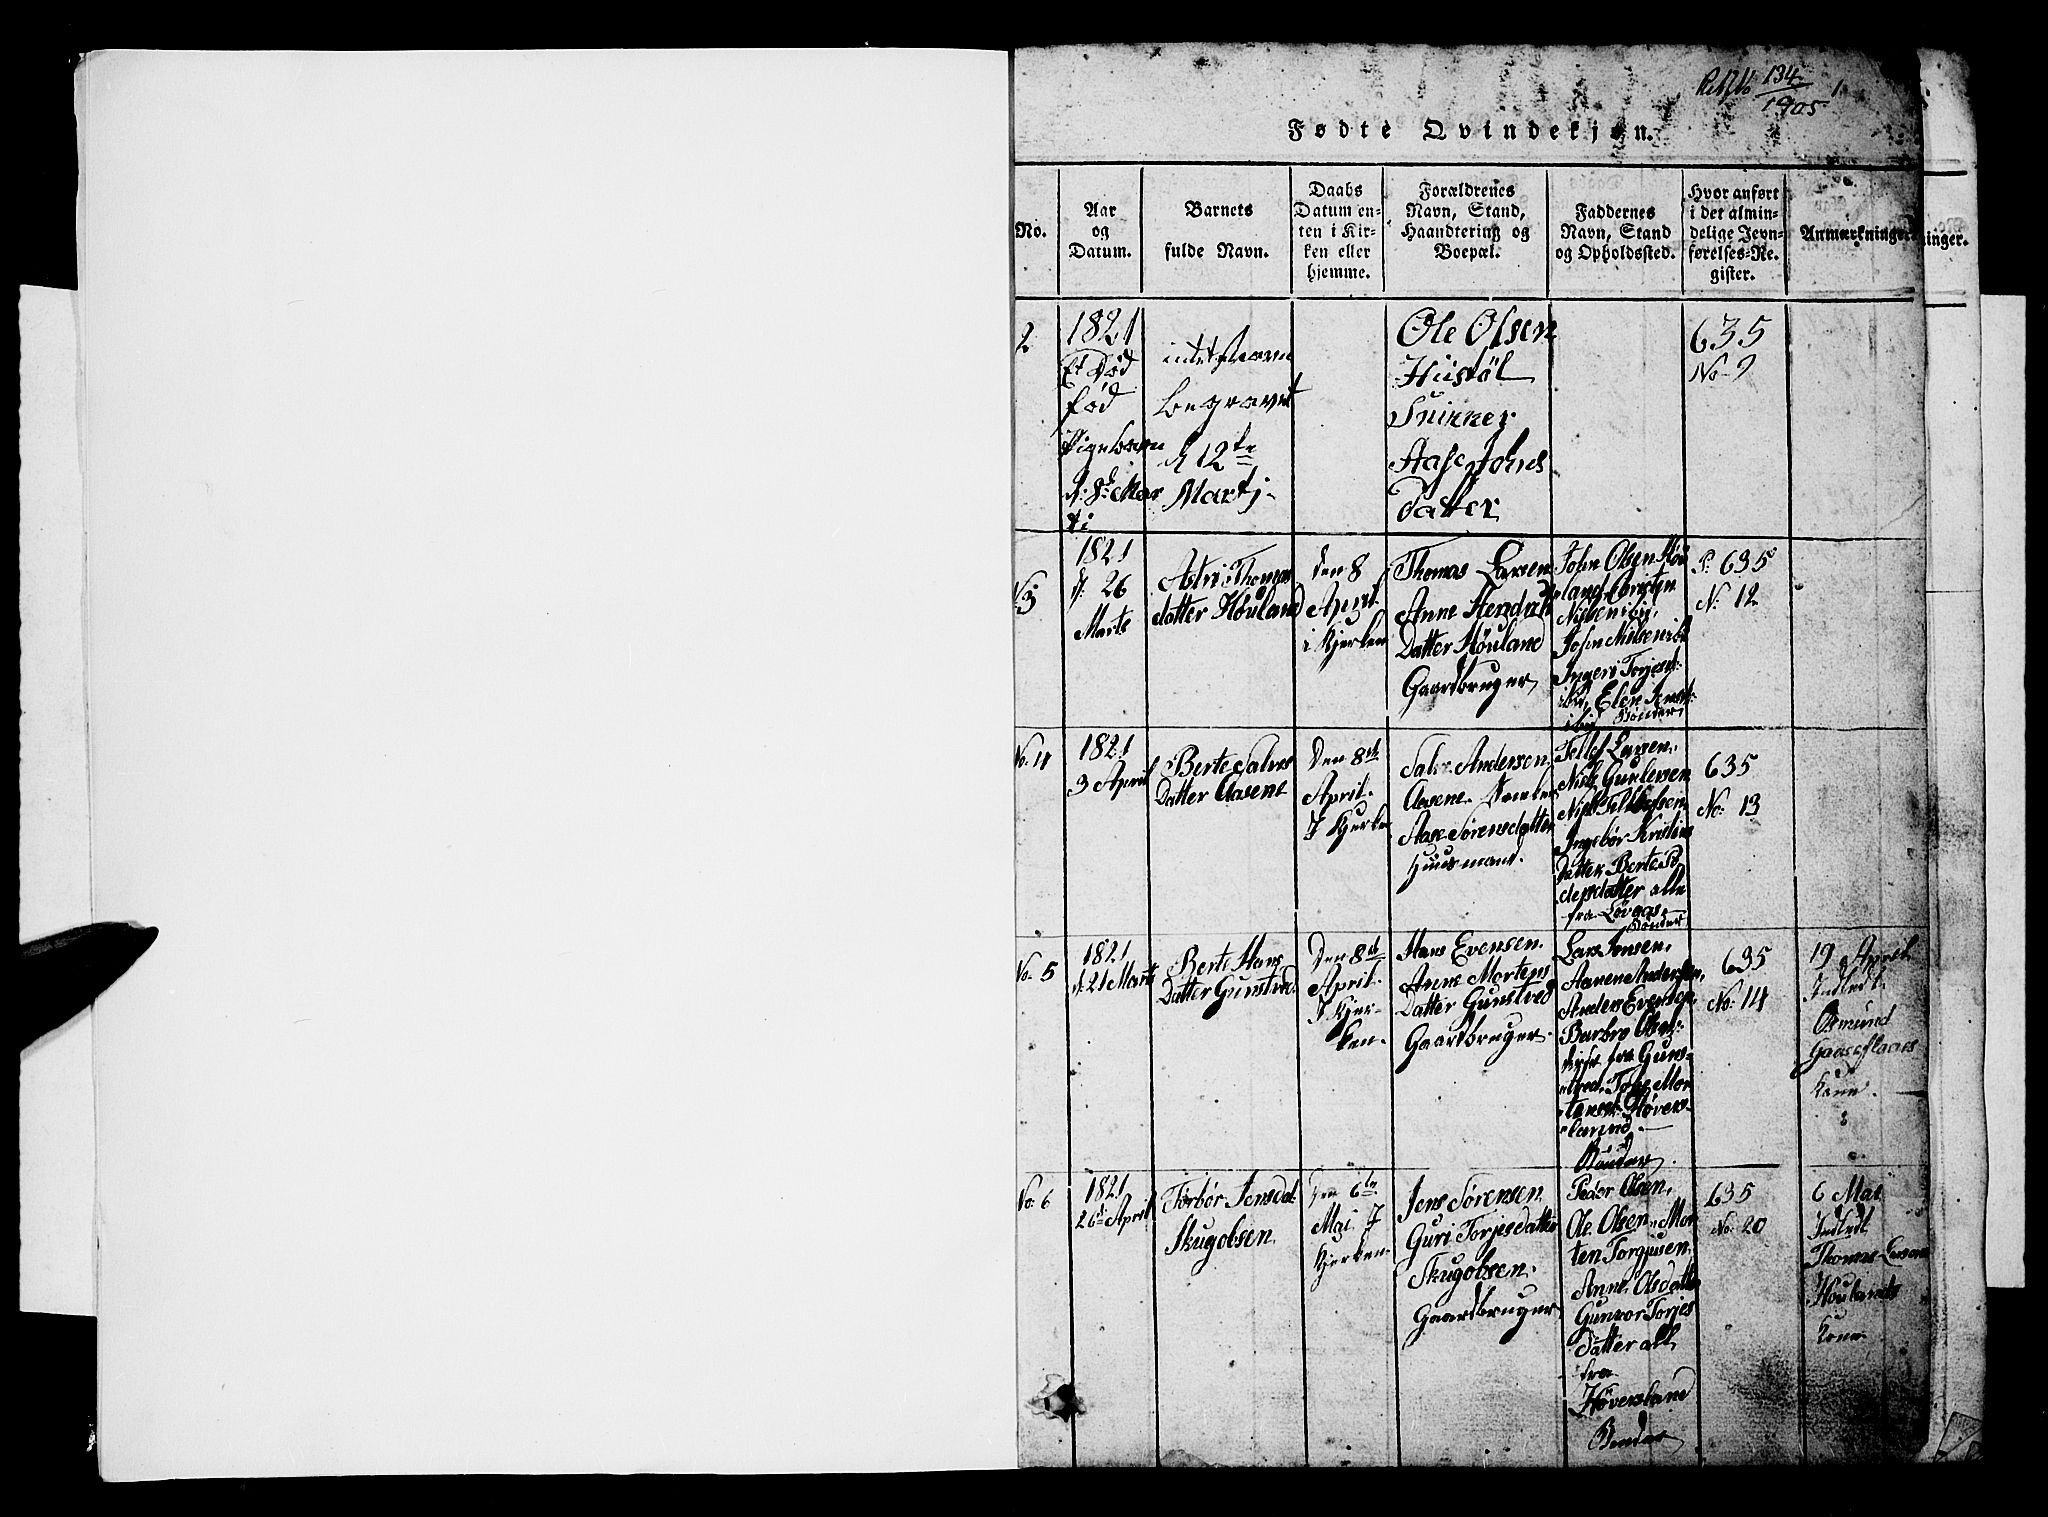 134
1905
1
Fødte Qvindekjøn.
No.
Aar
og
Datum.
Barnets
fulde Navn.
Daabs
Datum en-
ten i Kir-
ken eller
hjemme.
Forældrenes
Navn, Stand,
Haandtering og
Boepæl.
Faddernes
Navn, Stand
og Opholdssted.
Hvor anført
i det almin-
delige Jevn-
førelses-Re-
gister.
Anmærkninger
ninger.
2
1821
Et Død
fød
Pigebarn
d: 8de Mar
ti
begravet
d 12te
Martj
Ole Olsen
Huustøl
Snikker
Aase Johns
Datter
635
No 9
No 3
1821
d. 26
Marts
Astri Thomas
datter Høuland
Den 8
April
i Kjerken
Thomas Larsen
Anne
Datter Høuland
Gaardbruger
John Olsen Høu
land
John Nilsen
Ingeri
Elen
Bønder
P. 635
No 12
No. 4
1821
3 April
Berte Salves
Datter Aasene
Den 8de
April.
I Kjerken
Salve Andersen
Aasene
Aase Sørensdatter
Huusmand.
Tellef Larsen,
Niels Gunlersen
Niels Tellefsen
Ingebør Kristine
Datter Berte
datter alle
fra
Bønder
635
No: 13
No. 5
1821
d. 21 Marts
Berte Hans
Datter Gunstved
Den 8de
April.
I Kjer-
ken.
Hans Evensen.
Anne Mortens
Datter Gunstved
Gaardbruger.
Lars Jensen,
Anders Evensen
Barbro
fra Guns-
tved. Mor
tensen Høvers-
land.
Bønder
635
No: 14
19 April
Indledt
Osmund
Gaaseflaaes
Kone.
No: 6
1821
26de April
Torbør Jensdat
Skugobsen
Den 6te
Mai I
Kjerken
Jens Sørensen
Guri Torjesdatter
Skugobsen.
Gaardbruger
Peder Olsen,
Ole Olsen, Mor
ten Torgjusen
Anne Olsdatter
Gunvor Torjes
datter all
fra
Høversland
Bønder
635
No: 20
6 Mai
Indledt
Thomas Larsen
Høulands
Kone